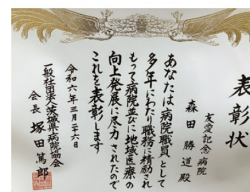 表彰状
友愛記念病院
森田勝道殿
あなたは病院職員として
多年にわたり職務に精励され
もって病院並びに地域医療の
向上発展に尽力されたので
これを表彰します
令和六年三月二十六日
一般社団法人茨城県病院協会
会長 塚田篤郎